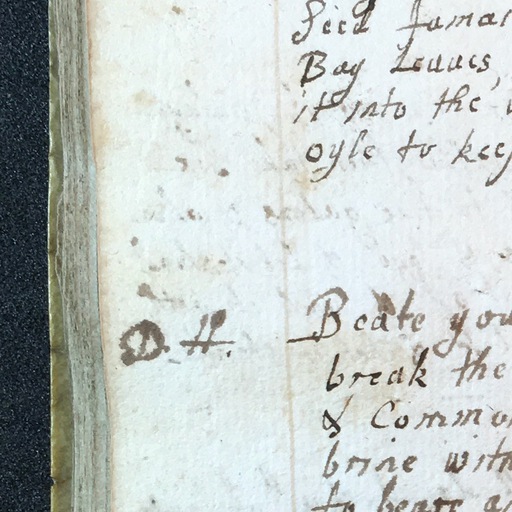 Seed Jamai
Bay Leaues,
it into the
oyle to keep
D. H. Beate you
break the
& Common
brine with
to beare